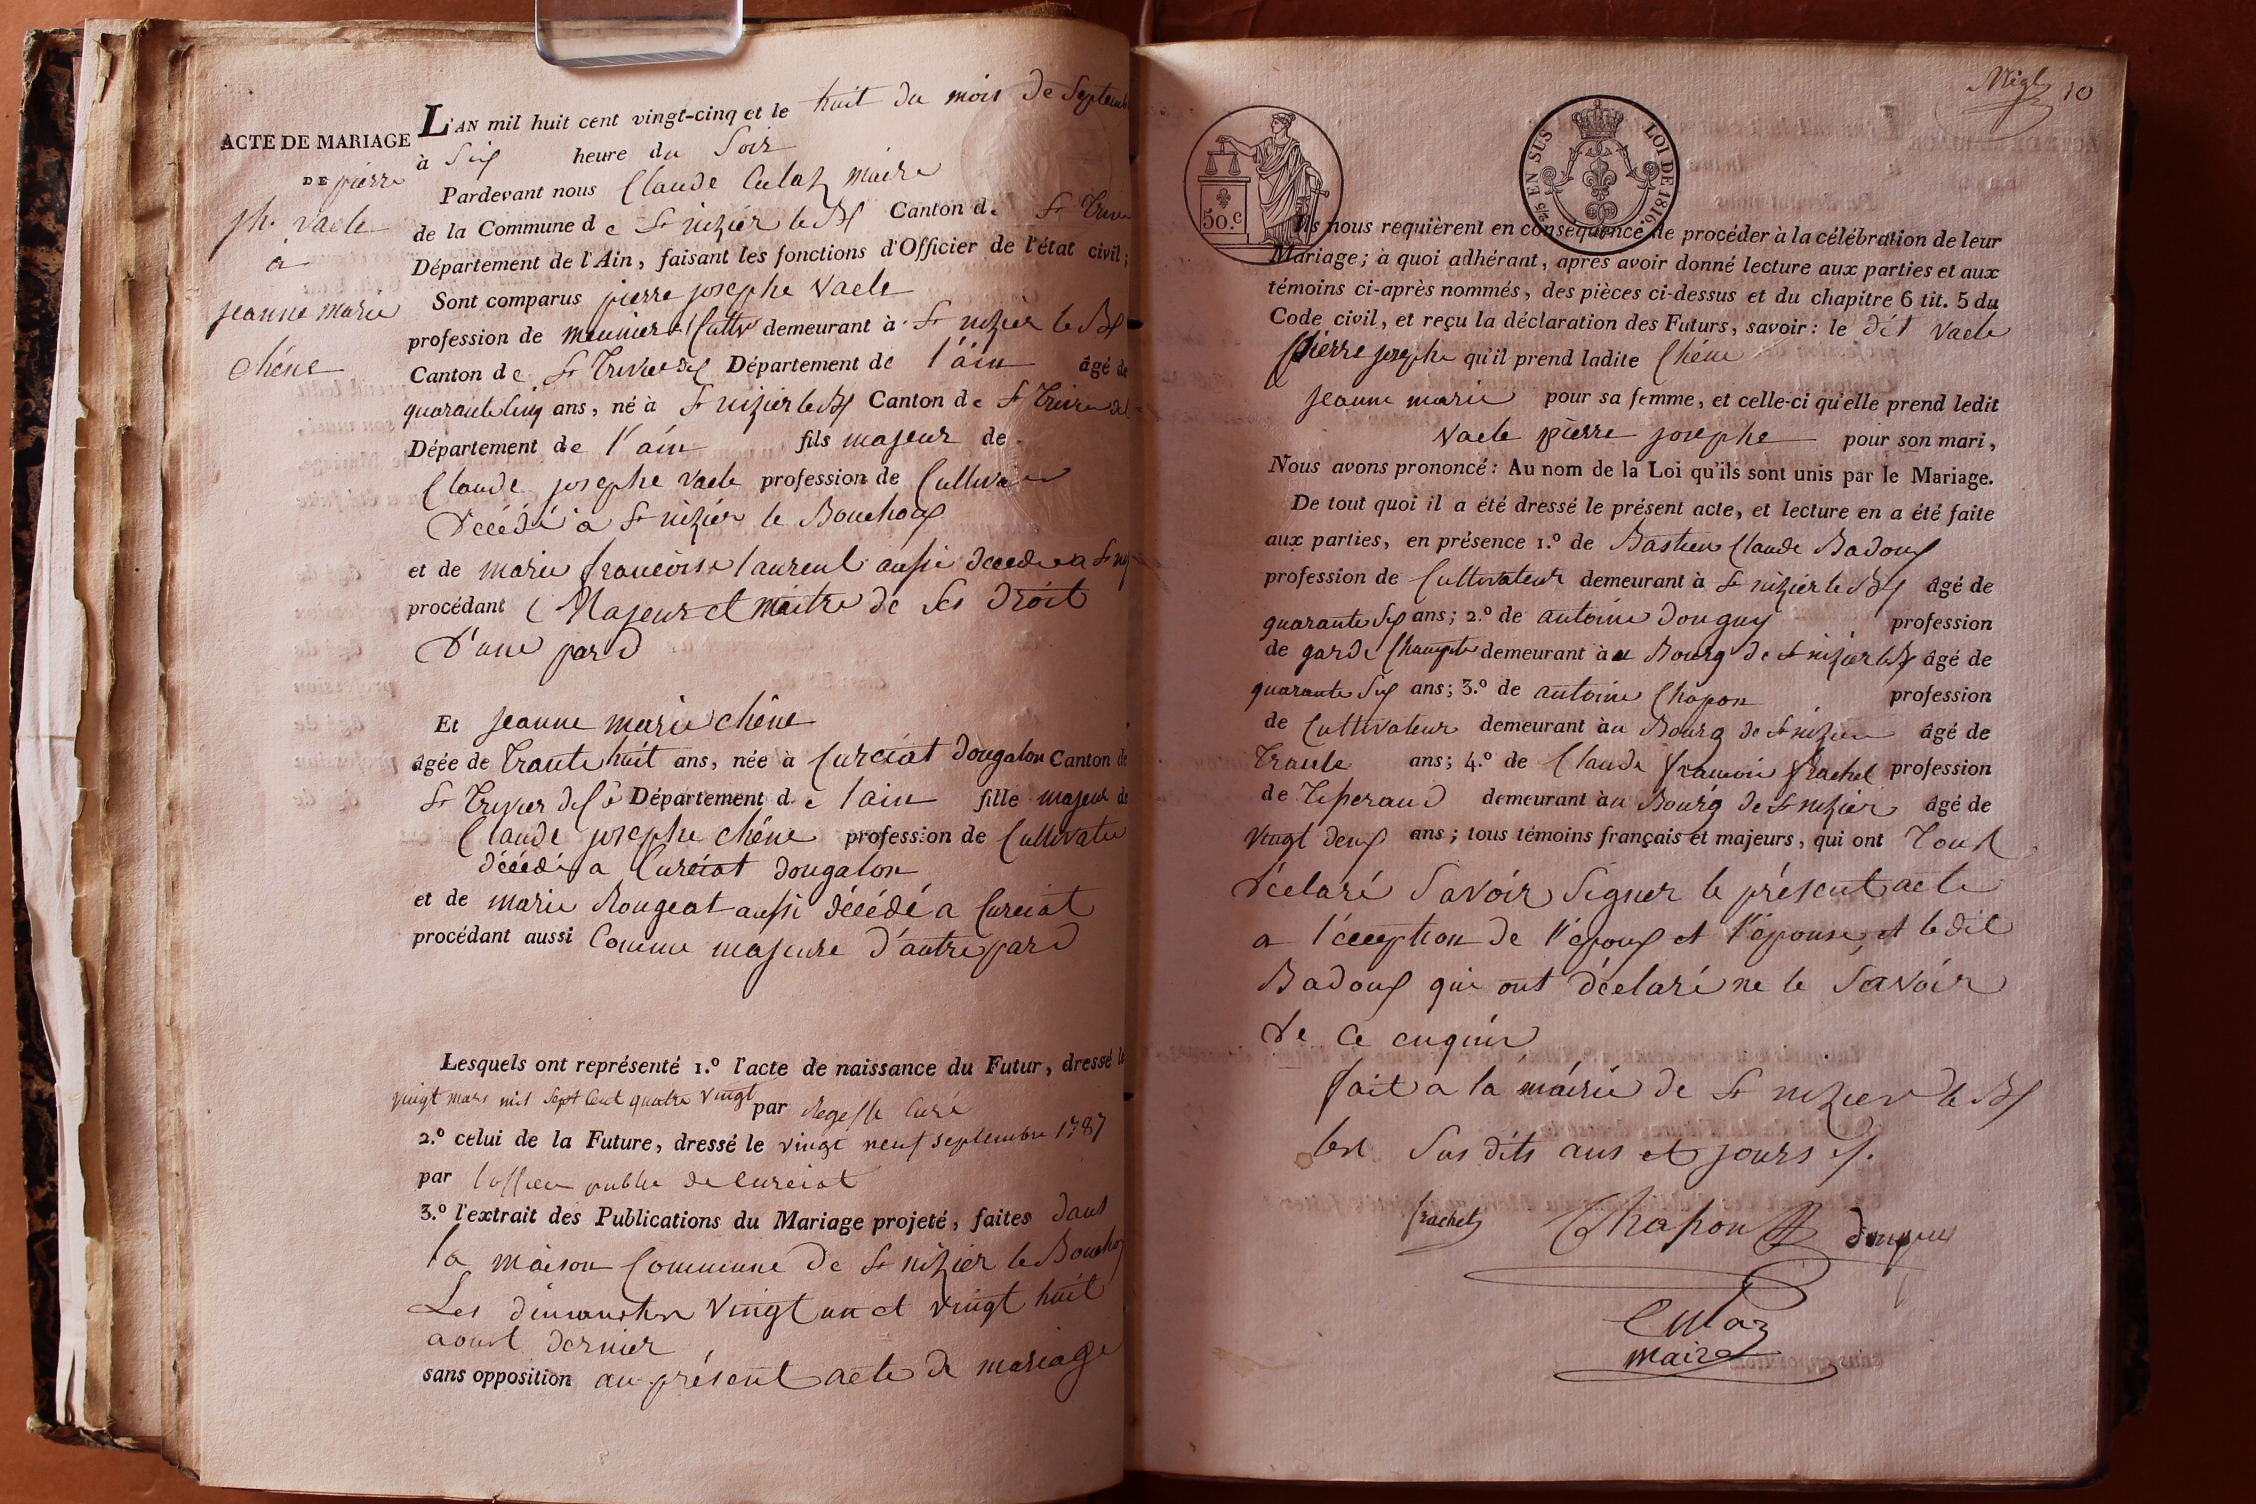 ACTE DE MARIAGE
DE pierre
jh. Vacle
à
jeanne marie
chêne
L'AN mil huit cent vingt-cinq et le huit du mois de Septemb
à Six heure du Soir
Pardevant nous Claude Culaz maire
de la Commune de St nizier le Bx Canton de St Trivie
Département de l'Ain, faisant les fonctions d'Officier de l'état civil;
Sont comparus pierre josephe Vacle
profession de meunier Cultr demeurant à St nizier le Bx
Canton de St Trivier de Département de l'ain âgé de
quarante cinq ans, né à St nizier le Bx Canton de St Trivier de
Département de l'ain fils majeur de
Claude josephe Vacle profession de Cultivateur
Décédé a St nizier le Bouchoux
et de marie françoise laurent aussi décédée a St niz
procédant Majeur et maitre de Ses droit
D'une pard
Et jeanne marie chêne
âgée de Trante huit ans, née à Curciat dongalon Canton de
St Trivier de Département de l'ain fille majeur de
Claude josephe chêne profession de Cultivateur
décédé a Curciat dongalon
et de marie Rougeat aussi décédé a Curciat
procédant aussi Comme majeure d'autre pard
Lesquels ont représenté 1.º l'acte de naissance du Futur, dressé le
vingt mars mil Sept Cent quatre vingt par Curé
2.º celui de la Future, dressé le vingt neuf Septembre 1787
par l'officier public de Curciat
3.º l'extrait des Publications du Mariage projeté, faites dans
la maison Commune de St nizier le Bouchoux
Les dimanches vingt un et vingt huit
aoust dernier
sans opposition au présent acte de mariage
10
50.c
5/c EN SUS
LOI DE 1816.
Ils nous requièrent en conséquence de procéder à la célébration de leur
Mariage; à quoi adhérant, après avoir donné lecture aux parties et aux
témoins ci-après nommés, des pièces ci-dessus et du chapitre 6 tit. 5 du
Code civil, et reçu la déclaration des Futurs, savoir: le dit Vacle
pierre josephe qu'il prend ladite Chêne
jeanne marie pour sa femme, et celle-ci qu'elle prend ledit
Vacle pierre josephe pour son mari,
Nous avons prononcé: Au nom de la Loi qu'ils sont unis par le Mariage.
De tout quoi il a été dressé le présent acte, et lecture en a été faite
aux parties, en présence 1.º de Bastien Claude Badoux
profession de Cultivateur demeurant à St nizier le Bx âgé de
quarante Six ans; 2.º de antoine donguy profession
de garde Champte demeurant à u Bourg de St nizier le Bx âgé de
quarante Six ans; 3.º de antoine Chapon profession
de Cultivateur demeurant àu Bourg de St nizier âgé de
Trante ans; 4.º de Claude francois frachet profession
de Tisserand demeurant àu Bourg de St nizier âgé de
Vingt deux ans; tous témoins français et majeurs, qui ont Tous
déclaré Savoir Signer le présent acte
a l'éception de l'époux et l'épouse, et le dit
Badoux qui ont déclaré ne le Savoir
de ce enquis
fait a la mairie de St nizier le Bx
les Sus dits ans et jours
frachet Chapon donguy
Culaz
maire